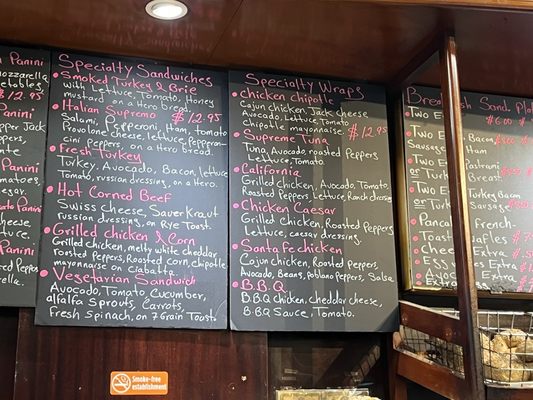 Panini
mozzarella
$12.95
Panini
Panini
Panini
Panini
Specialty Sandwiches
Smoked Turkey & Brie
with Lettuce, Tomato, Honey
mustard on a Hero bread.
Italian Supremo $12.95
Salami, Pepperoni, Ham, Tomato
Provolone cheese, Lettuce, Pepperon-
Cini Peppers, on a Hero bread.
Fresh Turkey
Turkey, Avocado, Bacon, lettuce
Tomato, russian dressing, on a Hero.
Hot Corned Beef
Swiss cheese, Sauer Kraut
russian dressing, on Rye Toast
Grilled chicken & Corn
Grilled chicken, melty white cheddar
Toasted Peppers, Roasted Corn, chipotle
mayonnaise on ciabatta.
Vegetarian Sandwich
Avocado, Tomato Cucumber,
alfalfa Sprouts, Carrots,
Fresh Spinach, on 7 Grain Toast
Specialty Wraps
chicken Chipotle
Cajun chicken, Jack cheese
Avocado, Lettuce, Tomato
Chipotle mayonnaise. $12.95
Supreme Tuna
Tuna, Avocado, roasted Peppers
Lettuce, Tomato.
California
Grilled chicken, Avocado, Tomato,
Roasted Peppers, Lettuce, Ranch dressing
Chicken Caesar
Grilled Chicken, Roasted Peppers,
Lettuce, caesar dressing.
Santa fe chicken
Cajun chicken, Roasted Peppers,
Avocado, Beans, Poblano Peppers, Salsa
B.B.Q
B.B.Q chicken, cheddar cheese,
B.B.Q Sauce, Tomato.
Breakfast Sand. Plat
Two E
Two E Bacon
Sausage Ham
Two E Pastrami
or
Two E Turkey Bacon
or T Sausage
Pancak French-
Toast
Cheese Extra
Egg Extra
Extra
Smoke-free
establishment